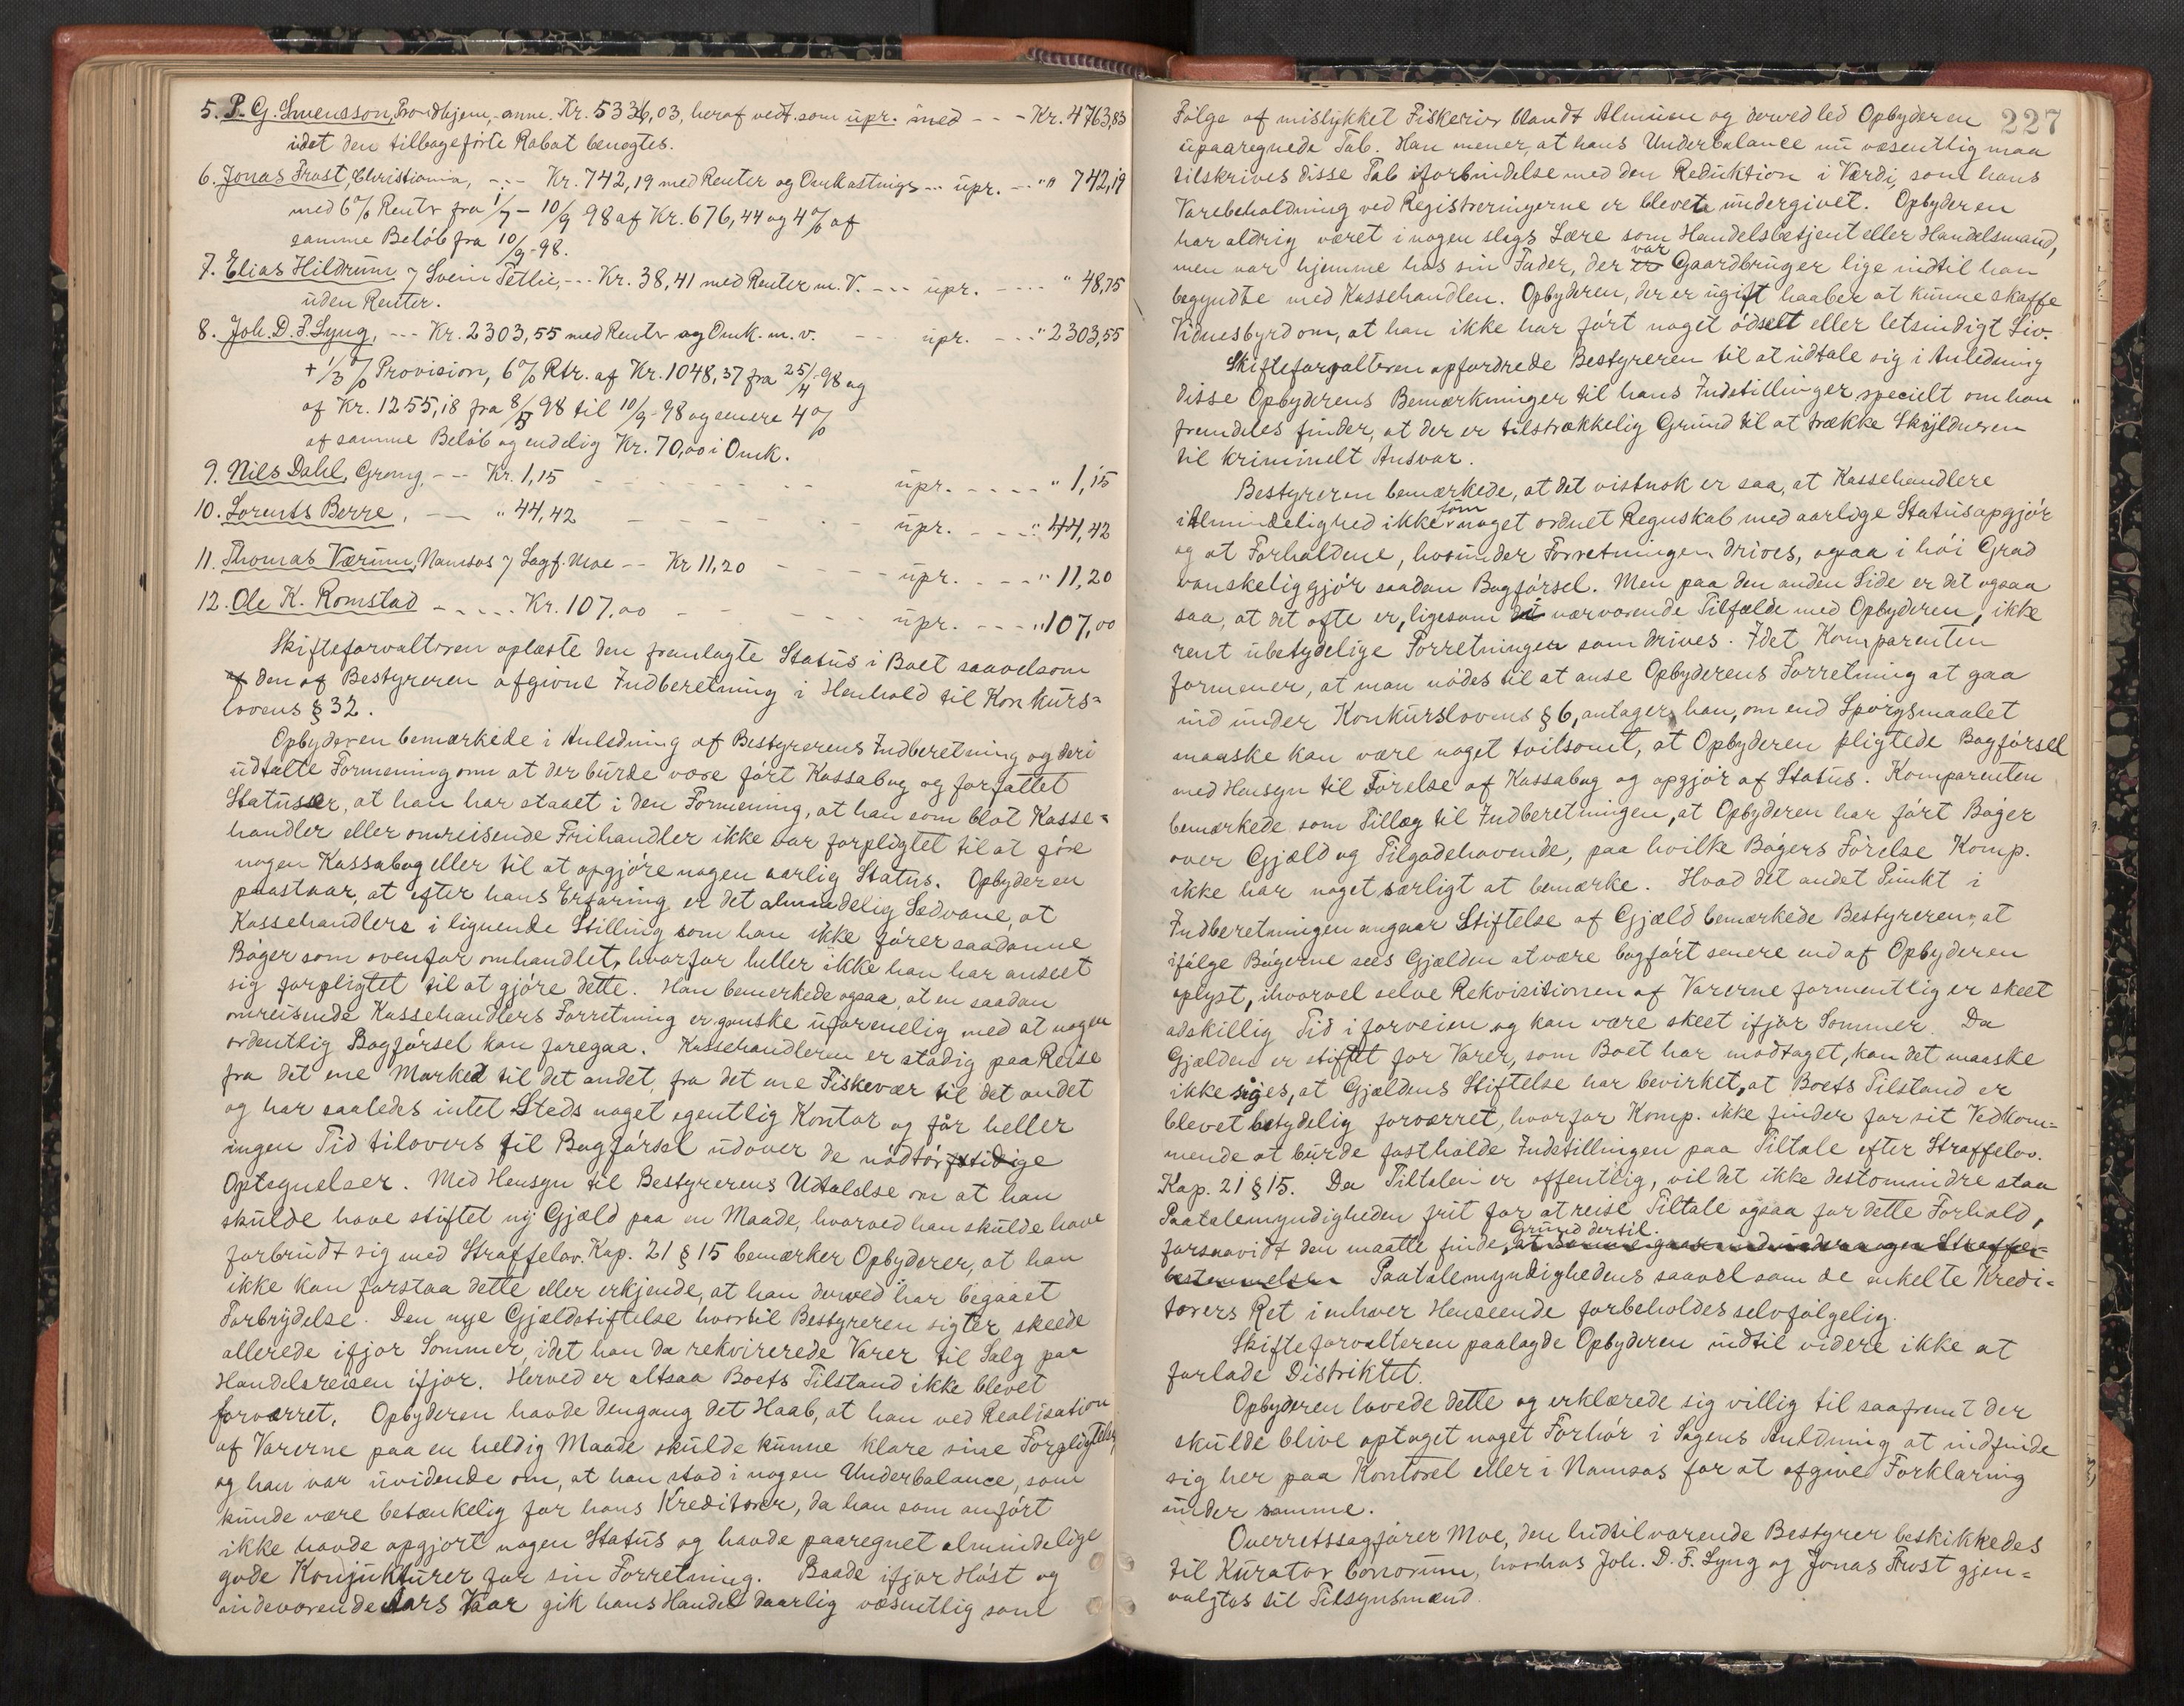 5. P. G. Svensson, Trondhjem, anm. Kr. 5336,03, heraf vedt. som upr. med - - - Kr. 4763,83
idet den tilbageførte Rabat benegtes.
6. Jonas Frost, Christiania, - - - Kr. 742,19 med Renter og Omkostnings - - upr. - - " 742,19
med 6% Renter fra 1/7 - 10/9 98 af Kr. 676,44 og 4% af
samme Beløb fra 10/9-98.
7. Elias Hildrum 7 Svein Tetlie, - - - Kr. 38,41 med Renter m. V. - - - upr. - - - - " 48,75
uden Renter.
8. Joh. D. F. Lyng, - - - Kr. 2303,55 med Renter og Omk. m. v. - - upr. - - - " 2303,55
+ 1/3 % Provision, 6% Rtr. af Kr. 1048,37 fra 25/4-98 og
af Kr. 1255,18 fra 8/5 98 til 10/9-98 og senere 4%
af samme Beløb og endelig Kr. 70,00 i Omk.
9. Nils Dahl, Grong, - - Kr. 1,15 - - - - - - - upr. - - - - " 1,15
10. Lorents Berre, - - " 44,42 - - - - - - - upr. - - - " 44,42
11. Thomas Værum, Namsos 7 Sagf. Moe - - Kr 11,20 - - - - upr. - - - - " 11,20
12. Ole K. Romstad - - - - Kr. 107,00 - - - - upr. - - - " 107,00
Skifteforvalteren oplæste den fremlagte Status i Boet saavelsom
af den af Bestyreren afgivne Indberetning i Henhold til Konkurs=
lovens § 32.
Opbyderen bemærkede i Anledning af Bestyrerens Indberetning og deri
udtalte Formening om at der burde være ført Kassabog og forfattet
Statuser, at han har staaet i den Formening, at han som blot Kasse=
handler eller omreisende Frihandler ikke var forpligtet til at føre
nogen Kassabog eller til at opgjøre nogen aarlig Status. Opbyderen
paastaar, at efter hans Erfaring er det almindelig Sædvane, at
Kassehandlere i lignende Stilling som han ikke fører saadanne
Bøger som ovenfor omhandlet, hvorfor heller ikke han har anseet
sig forpligtet til at gjøre dette. Han bemerkede ogsaa, at en saadan
omreisende Kassehandlers Forretning er ganske uforenelig med at nogen
ordentlig Bogførsel kan foregaa. Kassehandleren er stadig paa Reise
fra det ene Marked til det andet, fra det ene Fiskevær til det andet
og har saaledes intet Steds noget egentlig Kontor og får heller
ingen Tid tilovers til Bogførsel udover de nødtørftidige
Optegnelser. Med Hensyn til Bestyrerens Udtalelse om at han
skulde have stiftet ny Gjæld paa en Maade, hvorved han skulde have
forbrudt sig med Straffelov. Kap. 21 § 15 bemærker Opbyderer, at han
ikke kan forstaa dette eller erkjende, at han derved har begaaet
Forbrydelse. Den nye Gjældstiftelse hvortil Bestyreren sigter, skeede
allerede ifjor Sommer, idet han da rekvirerede Varer til Salg paa
Handelsreisen ifjor. Herved er altsaa Boets Tilstand ikke blevet
forværret. Opbyderen havde dengang det Haab, at han ved Realisation
af Varerne paa en heldig Maade skulde kunne klare sine Forpligtelser,
og han var uvidende om, at han stod i nogen Underbalance, som
kunde være betænkelig for hans Kreditorer, da han som anført
ikke havde opgjort nogen Status og havde paaregnet almindelige
gode Konjukturer for sin Forretning. Baade ifjor Høst og
indeværende Aars Vaar gik hans Handel daarlig væsentlig som
227
Følge af mislykket Fiskerier blandt Almuen og derved led Opbyderen
upaaregnede Tab. Han mener, at hans Underbalance nu væsentlig maa
tilskrives disse Tab iforbindelse med den Reduktion i Værdi, som hans
Varebeholdning ved Registreringerne er blevet undergivet. Opbyderen
har aldrig været i nogen slags Lære som Handelsbetjent eller Handelsmand,
men var hjemme hos sin Fader, der er var Gaardbruger lige indtil han
begyndte med Kassehandlen. Opbyderen, der er ugift haaber at kunne skaffe
Vidnesbyrd om, at han ikke har ført noget ødselt eller letsindigt Liv.
Skifteforvalteren opfordrede Bestyreren til at udtale sig i Anledning
disse Opbyderens Bemærkninger til hans Indstillinger specielt om han
fremdeles finder, at der er tilstrækkelig Grund til at trække Skylderen
til kriminelt Ansvar.
Bestyreren bemærkede, at det vistnok er saa, at Kassehandlere
i Almindelighed ikke før noget ordnet Regnskab med aarlige Statusopgjør
og at Forholdene, hvorunder Forretningen drives, ogsaa i høi Grad
vanskeliggjør saadan Bogførsel. Men paa den anden Side er det ogsaa
saa, at det ofte er, ligesom det nærværende Tilfælde med Opbyderen, ikke
rent ubetydelige Forretninger som drives. Idet Komparenten
formener, at man nødes til at anse Opbyderens Forretning at gaa
ind under Konkurslovens § 6, antager han, om end Spørgsmaalet
maaske kan være noget tvilsomt, at Opbyderen pligtede Bogførsel
med Hensyn til Førelse af Kassabog og opgjør af Status. Komparenten
bemærkede som Tillæg til Indberetningen, at Opbyderen har ført Bøger
over Gjæld og Tilgodehavende, paa hvilke Bøgers Førelse Komp.
ikke har noget særligt at bemærke. Hvad det andet Punkt i
Indberetningen angaar Stiftelse af Gjæld bemærkede Bestyreren, at
ifølge Bøgerne sees Gjælden at være bogført senere end af Opbyderen
oplyst, ihvorvel selve Rekvisitionen af Varerne formentlig er skeet
adskillig Tid i forveien og kan være skeet ifjor Sommer. Da
Gjælden er stiftet for Varer, som Boet har modtaget, kan det maaske
ikke siges, at Gjældens Stiftelse har bevirket, at Boets Tilstand er
blevet betydelig forværret, hvorfor Komp. ikke finder for sit Vedkom=
mende at burde fastholde Indstillingen paa Tiltale efter Straffelov.
Kap. 21 § 15. Da Tiltalen er offentlig, vil det ikke destomindre staa
Paatalemyndigheden frit for at reise Tiltale ogsaa for dette Forhold,
forsaavidt den maatte finde Grund dertil.
bestemmelser Paatalemyndighedens saavel som de enkelte Kredi=
torers Ret i enhver Henseende forbeholdes selvfølgelig.
Skifteforvalteren paalagde Opbyderen indtil videre ikke at
forlade Distriktet.
Opbyderen lovede dette og erklærede sig villig til saafremt der
skulde blive optaget noget Forhør i Sagens Anledning at indfinde
sig her paa Kontoret eller i Namsos for at afgive Forklaring
under samme.
Overretssagfører Moe, den hidtilværende Bestyrer beskikkedes
til Kurator bonorum, hvorhos Joh. D. F. Lyng og Jonas Frost gjen=
valgtes til Tilsynsmænd.